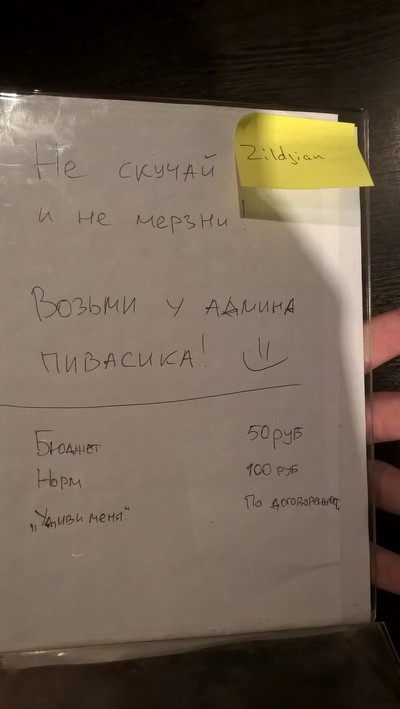 Zildjian
Не скучай
и не мерзни!
Возьми у админа
пивасика!
Бюджет 50 руб
Норм 100 руб
„Удиви меня“ По договоренност